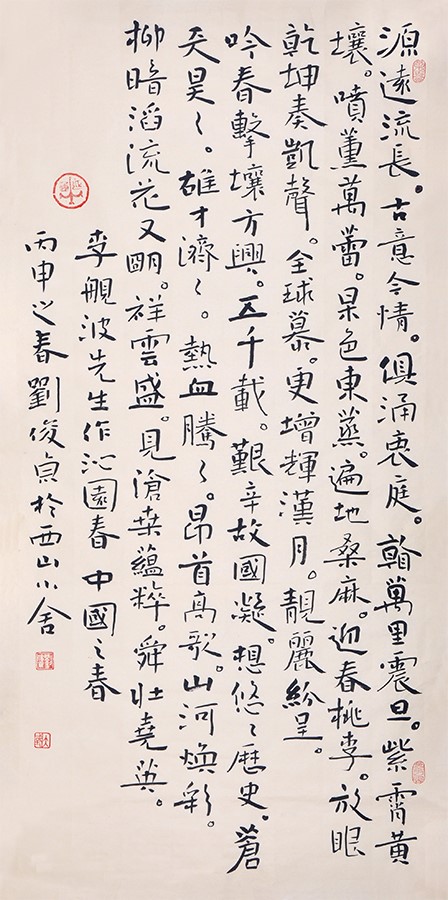 源遠流長。古意今情。俱涌衷庭。翰萬里震旦。紫霄黄
壤。噴薰萬蕾。杲色東蒸。遍地桑麻。迎春桃李。放眼
乾坤奏凱聲。全球慕。更增輝漢月。靚麗紛呈。
吟春擊壤方興。五千載。艱辛故國凝。想悠〻歷史。蒼
天昊〻。雄才濟〻。熱血騰〻。昂首高歌。山河焕彩。
柳暗滔流花又明。祥雲盛。見滄桑蘊粹。舜壯堯英。
李舰波先生作沁園春 中國之春
丙申之春劉俊貞於西山小舍